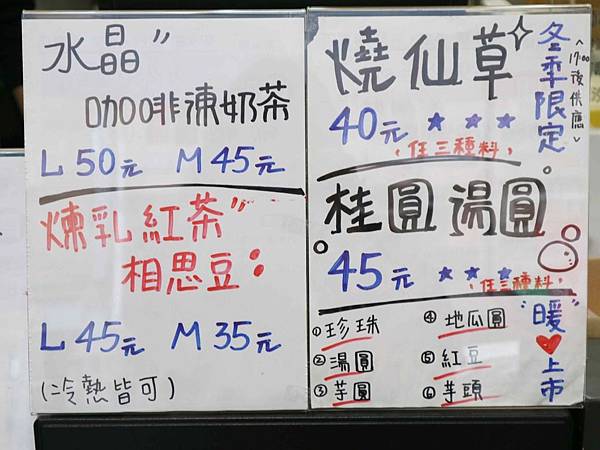 水晶"
咖啡凍奶茶
L 50元 M 45元
煉乳紅茶"
相思豆:
L 45元 M 35元
(冷熱皆可)
燒仙草
40元 ★ ★ ★
(任三種料)
桂圓湯圓
45元 ★ ★ ★
(任三種料)
①珍珠
②湯圓
③芋圓
④地瓜圓
⑤紅豆
⑥芋頭
冬季限定。
<17:00後供應>
"暖♥上市